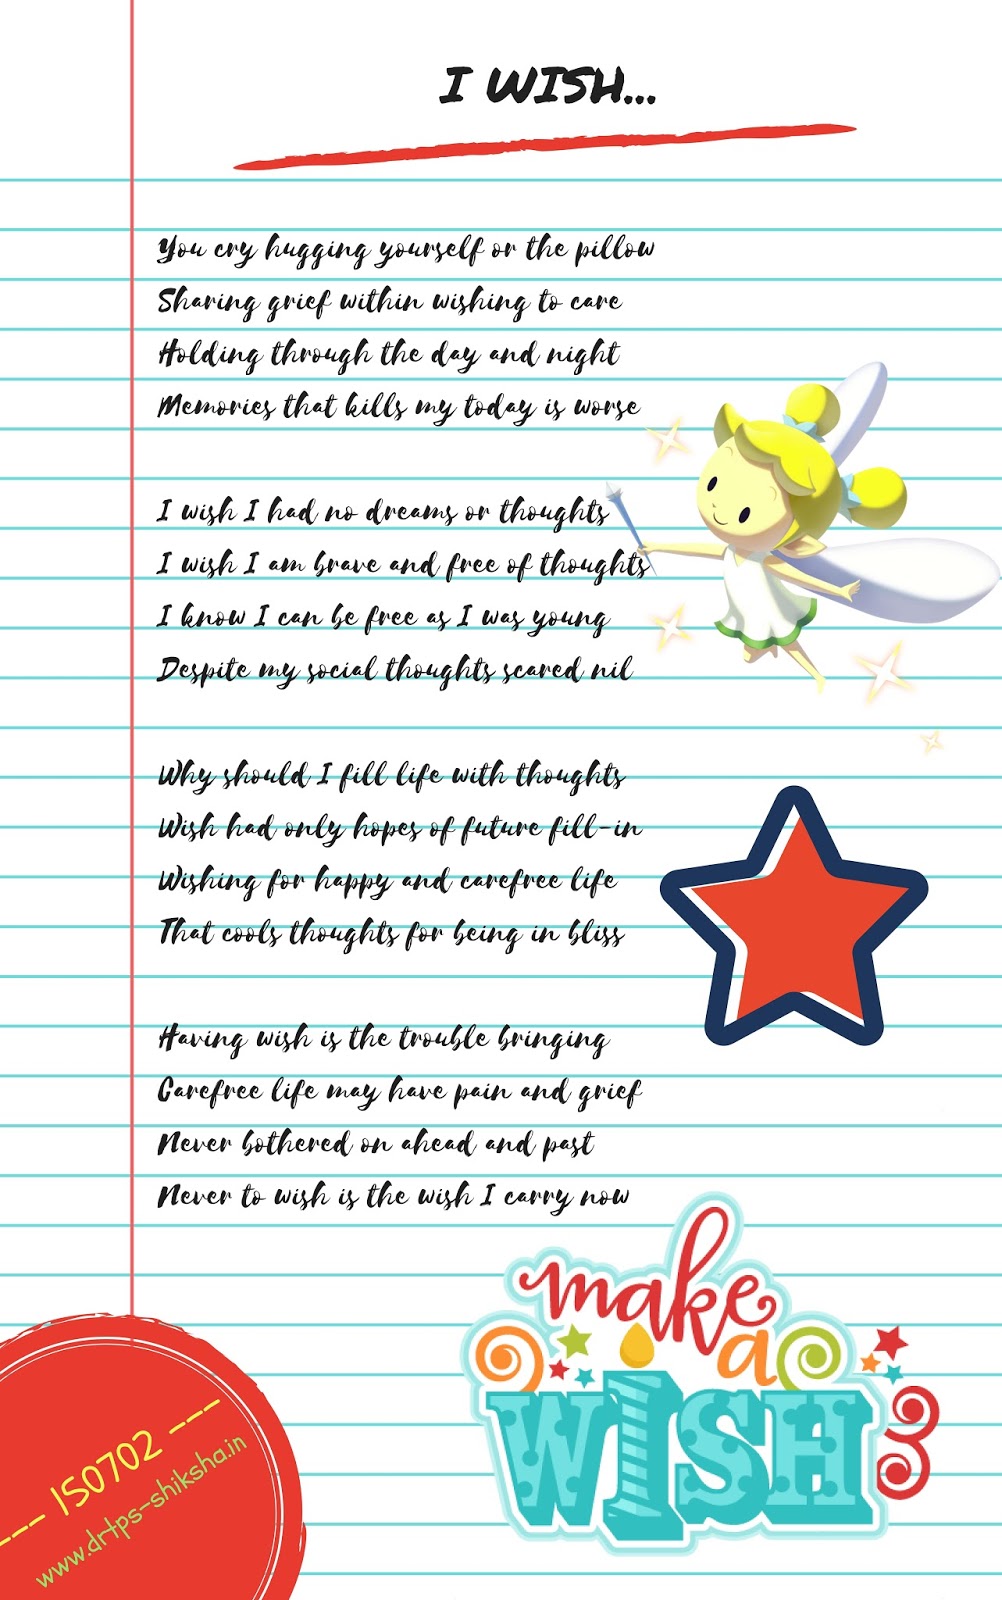 I WISH...
You cry hugging yourself or the pillow
Sharing grief within wishing to care
Holding through the day and night
Memories that kills my today is worse
I wish I had no dreams or thoughts
I wish I am brave and free of thoughts
I know I can be free as I was young
Despite my social thoughts scared nil
Why should I fill life with thoughts
Wish had only hopes of future fill-in
Wishing for happy and carefree life
That cools thoughts for being in bliss
Having wish is the trouble bringing
Carefree life may have pain and grief
Never bothered on ahead and past
Never to wish is the wish I carry now
make
a
WISH
--- 150702 ---
www.drtps-shiksha.in